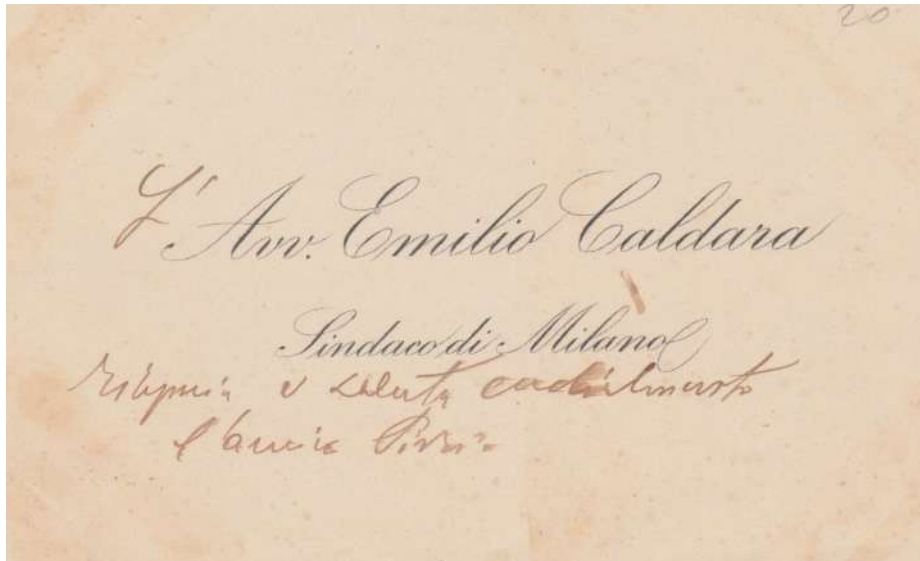 20
L'Avv. Emilio Caldara
Sindaco di Milano
e saluta cordialmente
l'amico